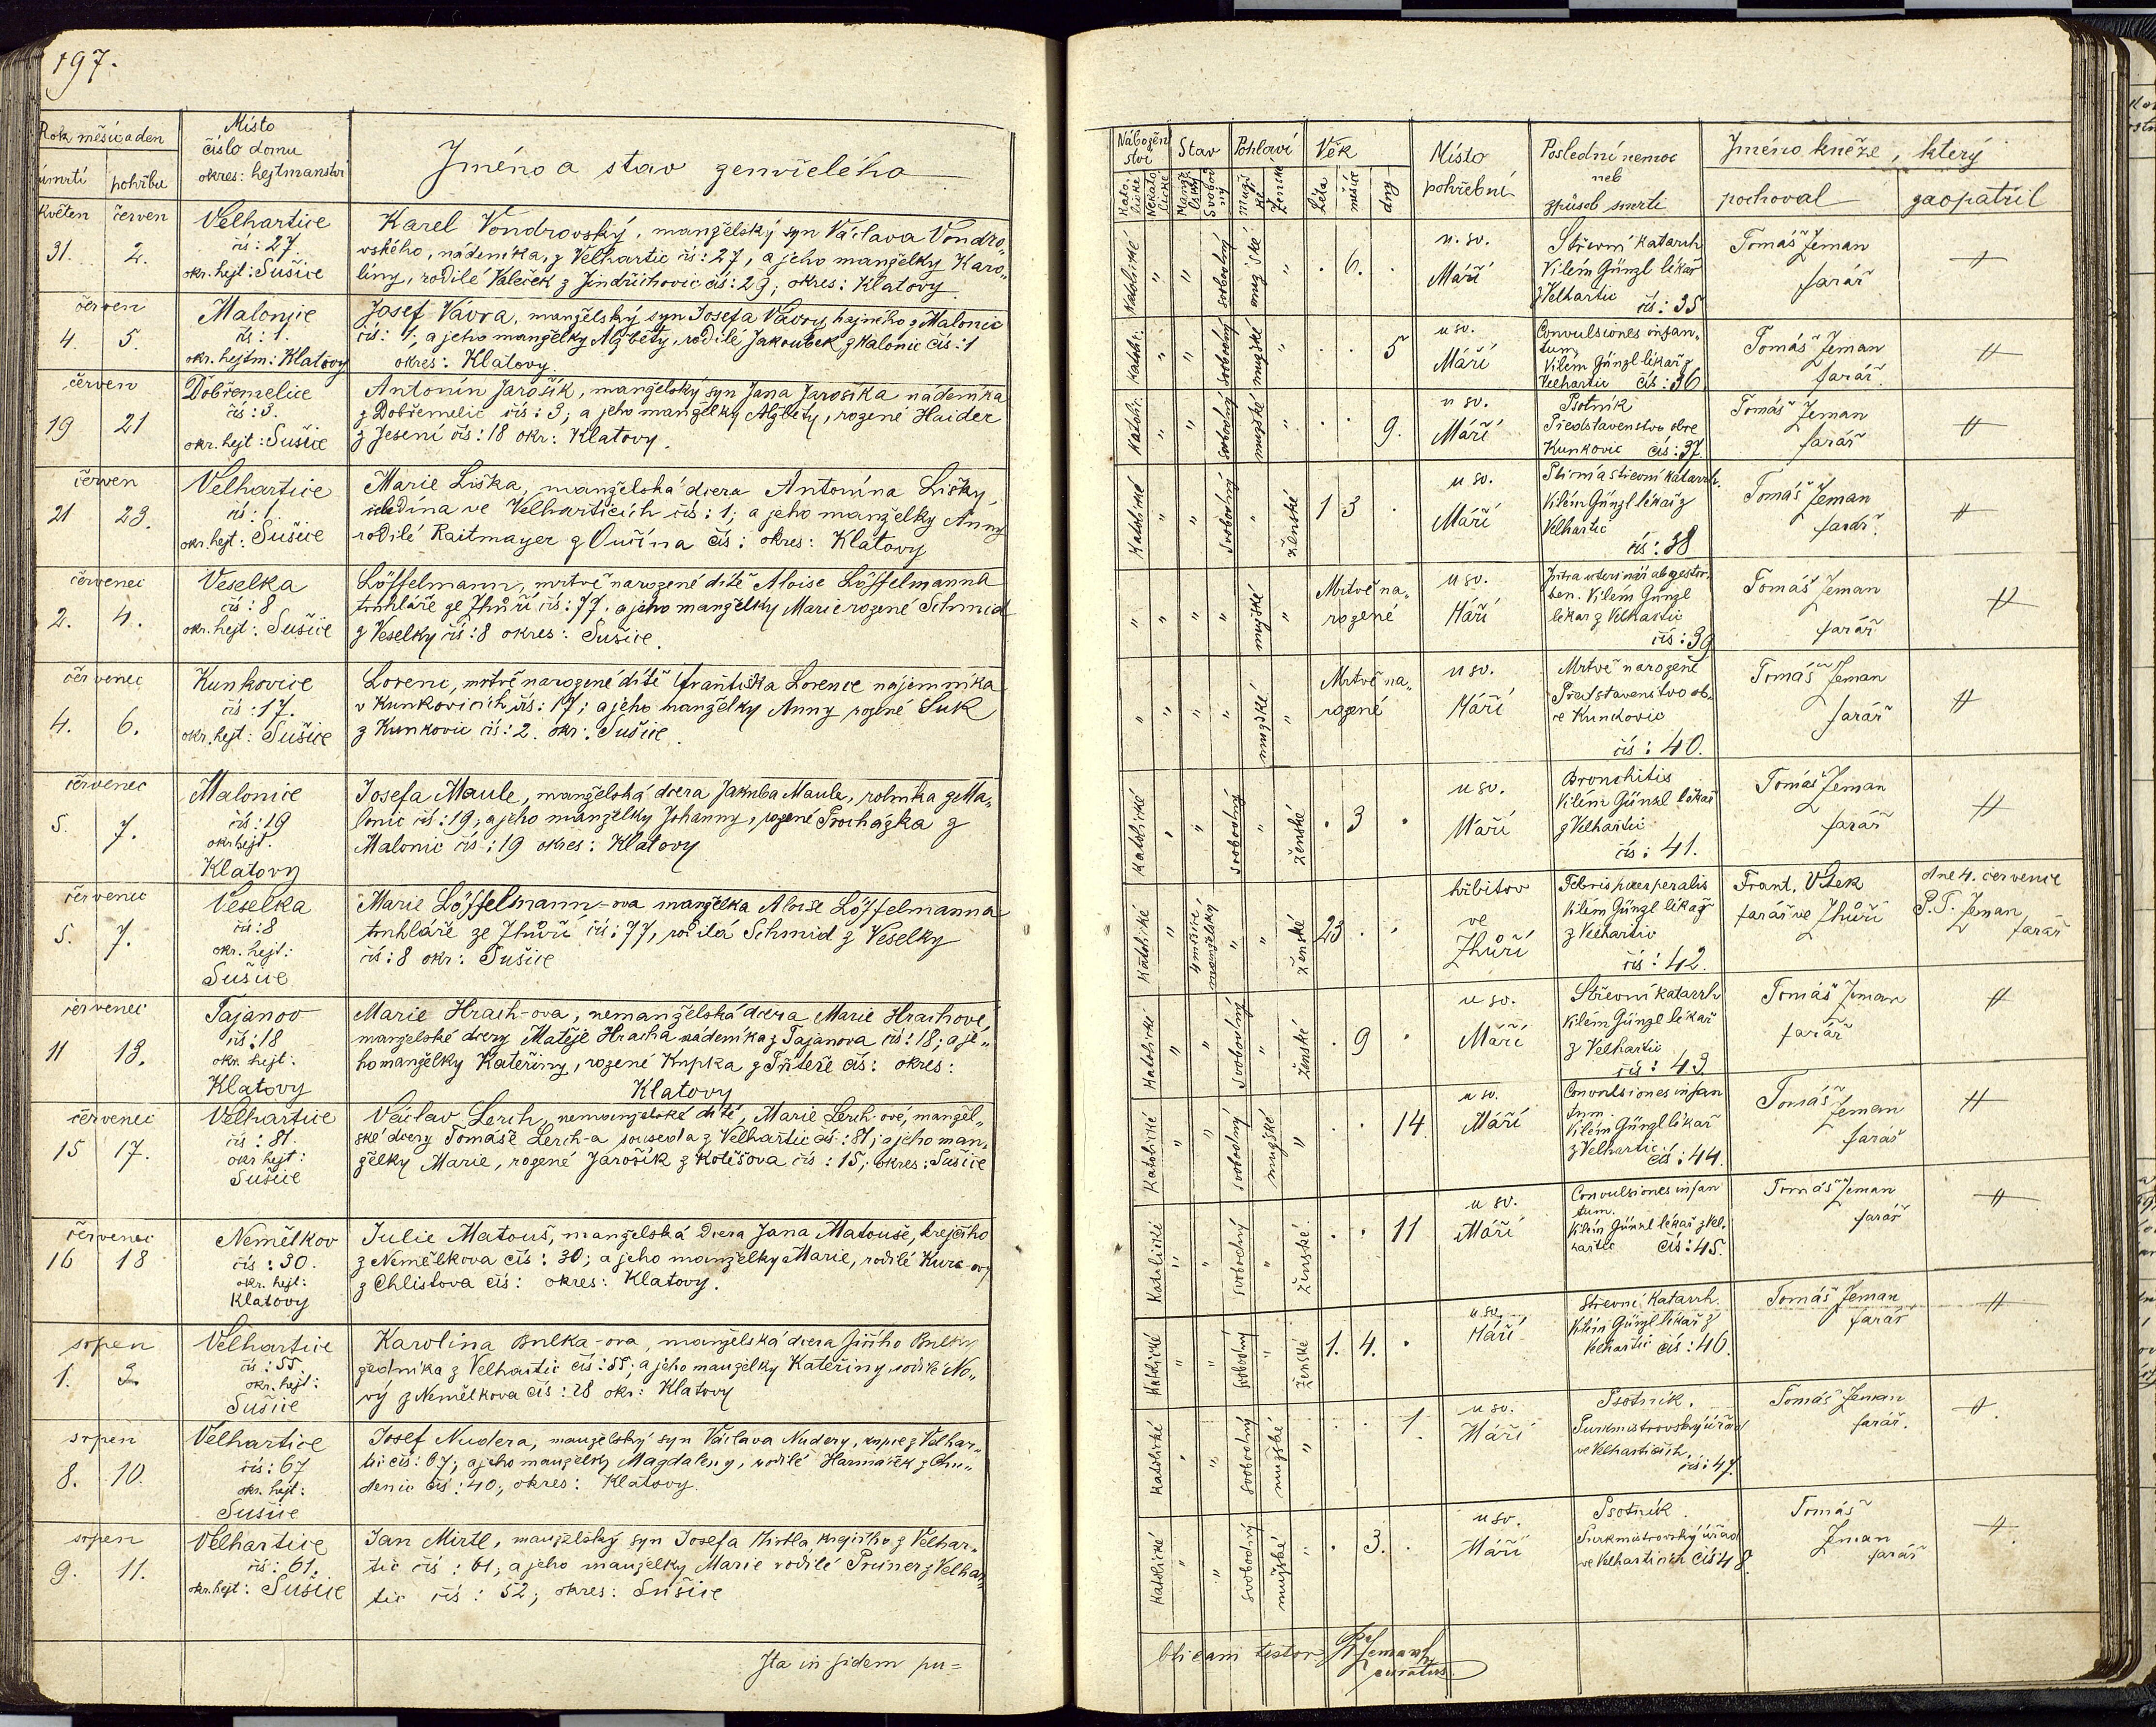 197.
Rok měsíc a den
úmrtí
pohřbu
Místo
číslo domu
okres: hejtmanství
Jméno a stav zemřelého
květen červen
31. 2.
Velhartice
čís: 27.
okr. hejt: Sušice
Karel Vondrovský, manželský syn Václava Vondro„
vského, nádeníka, z Velhartic čís: 27, a jeho manželky Karo„
liny, rodilé Valeček z Jindřichovic čís: 29; okres: Klatovy
červen
4 5.
Malonice
čís: 1.
okr. hejtm: Klatovy
Josef Vávra, manželský syn Josefa Vávry hajného z Malonic
čís: 1, a jeho manželky Alžběty, rodilé Jakoubek z Malonic čís: 1
okres: Klatovy.
červen
19 21
Dobřemelice
čís: 3.
okr. hejt: Sušice
Antonín Jarošík, manželský syn Jana Jarošíka nádeníka
z Dobřemelic čís: 3; a jeho manželky Alžběty, rozené Haider
z Jesení čís: 18 okr: Klatovy.
červen
21 23.
Velhartice
čís: 1.
okr. hejt: Sušice
Marie Liška, manželská dcera Antonína Lišky,
čeledína ve Velharticích čís: 1; a jeho manželky Anny
rodilé Raitmayer z Oučína čís: okres: Klatovy
červenec
2. 4.
Veselka
čís: 8
okr. hejt: Sušice
Löffelmann, mrtvě narozené dítě Aloise Löffelmanna
truhláře ze Zhůří čís: 77. a jeho manželky Marie rozené Schmid
z Veselky čís: 8 okres: Sušice.
červenec
4. 6.
Kunkovice
čís: 17.
okr. hejt: Sušice
Lorenc, mrtvě narozené dítě Františka Lorence nájemníka
v Kunkovicích čís: 17; a jeho manželky Anny rozené Suk
z Kunkovic čís: 2. okr: Sušice.
červenec
5. 7.
Malonice
čís: 19
okr hejt.
Klatovy
Josefa Maule, manželská dcera Jakuba Maule, rolníka z Ma„
lonic čís: 19; a jeho manželky Johanny, rozené Procházka z
Malonic čís: 19 okres: Klatovy
červenec
5. 7.
Veselka
čís: 8
okr. hejt:
Sušice
Marie Löffelmann-ova manželka Aloise Löffelmanna
truhláře ze Zhůří čís: 77, rodilá Schmid z Veselky
čís: 8 okr: Sušice
červenec
11 13.
Tajanov
čís: 18
okr. hejt:
Klatovy
Marie Hrach-ova, nemanželská dcera Marie Hrachové,
manželské dcery Matěje Hracha nádeníka z Tajanova čís: 18; a je„
ho manželky Kateřiny, rozené Krpka z čís: okres:
Klatovy
červenec
15 17.
Velhartice
čís: 81.
okr hejt:
Sušice
Václav Lerch, nemanželské dítě, Marie Lerch-ové, manžel„
ské dcery Tomáše Lerch-a souseda z Velhartic čís: 81; a jeho man„
želky Marie, rozené Jarošík z Kolešova čís: 15; okres: Sušice
červenec
16 18
Nemělkov
čís: 30.
okr. hejt:
Klatovy
Julie Matouš, manželská dcera Jana Matouše, krejčího
z Nemělkova čís: 30; a jeho manželky Marie, rodilé
z Chlistova čís: okres: Klatovy.
srpen
1. 3.
Velhartice
čís: 55.
okr. hejt:
Sušice
Karolina Bulka-ova, manželská dcera Jiřího Bulky
zedníka z Velhartic čís: 55; a jeho manželky Kateřiny, rodilé No„
vý z Nemělkova čís: 28 okr: Klatovy
srpen
8. 10.
Velhartice
čís: 67
okr. hejt:
Sušice
Josef Nudera, manželský syn Václava Nudery, kupce z Velhar„
tic čís: 67; a jeho manželky Magdaleny, rodilé Harmáček z Chu„
denic čís: 40; okres: Klatovy.
srpen
9. 11.
Velhartice
čís: 61.
okr. hejt: Sušice
Jan Mirtl, manželský syn Josefa Mirtla, krejčího z Velhar„
tic čís: 61; a jeho manželky Marie rodilé Pruner z Velhar„
tic čís: 52; okres: Sušice
Ita in fidem pu=
Nábožen
ství
Stav
Pohlaví
Věk
Místo
pohřební
Poslední nemoc
neb
způsob smrti
Jméno kněze, který
pochoval
zaopatřil
Kato.
lické
Nekato
lické
Manž.
lský
Svobod
ný
Muž
ké
Ženské
Léta
měsíce
dny
katolické " " svobodný mužské " . 6. .
u sv.
Máří
Střevní katarrh
Vilém Günzl lékař
z Velhartic
čís: 35
Tomáš Zeman
farář
katolir. " " svobodný mužské " . . 5
u sv.
Máří
Convulsiones infan„
tum
Vilém Günzl lékař z
Velhartic čís: 36
Tomáš Zeman
farář.
katolir. " " svobodný mužské " . . 9.
u sv.
Máří
Psotník
Představenstvo obce
Kunkovic čís: 37
Tomáš Zeman
farář
Katolické " " svobodný " ženské 1 3 .
u sv.
Máří
Plicní a střevní katarrh.
Vilém Günzl lékař z
Velhartic
čís: 38
Tomáš Zeman
farář.
" " " " mužské "
Mrtvě na„
rozené
u sv.
Máří
Intra uterinär abgestor„
ben. Vilém Günzl
lékař z Velhartic
čís: 39
Tomáš Zeman
farář
" " " " mužské "
Mrtvě na„
rozené
u sv.
Máří
Mrtvě narozené
Představenstvo ob„
ce Kunkovic
čís: 40.
Tomáš Zeman
farář
katolické " " svobodný " ženské . 3 .
u sv.
Máří
Bronchitis
Vilém Günzl lékař
z Velhartic
čís: 41.
Tomáš Zeman
farář
katolické " 4 měsíce manželský " " ženské 23 . .
hřbitov
ve
Zhůří
Febris puerperalis
Vilém Günzl lékař
z Velhartic
čís: 42.
Frant. Vlček
farář ve Zhůří
dne 4. července
P. T. Zeman
farář
katolické " " svobodný " ženské . 9 .
u sv.
Máří
Střevní katarrh
Vilém Günzl lékař
z Velhartic
čís: 43
Tomáš Zeman
farář
katolické " " svobodný mužské " . . 14.
u sv.
Máří
Convulsiones infan
tum.
Vilém Günzl lékař
z Velhartic
čís: 44.
Tomáš
Zeman
farář
katolické " " svobodný " ženské. . . 11
u sv.
Máří
Convulsiones infan
tum.
Vilém Günzl lékař z Vel„
hartic čís: 45.
Tomáš Zeman
farář
katolické " " svobodný " ženské 1. 4. .
u sv.
Máří
Střevní katarrh.
Vilém Günzl lékař z
Velhartic čís: 46.
Tomáš Zeman
farář
katolické " " svobodný mužské " . . 1.
u sv.
Máří
Psotník.
Purkmistrovský úřad
ve Velharticích.
čís: 47.
Tomáš Zeman
farář.
katolické " " svobodný mužské " . 3. .
u sv.
Máří
Psotník.
Purkmistrovský úřad
ve Velharticích čís: 48.
Tomáš
Zeman
farář
blicam testor Zeman
curatus.